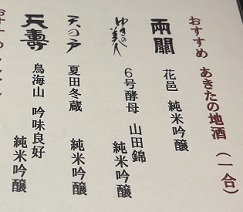 おすすめ あきたの地酒（一合）
両關 花邑 純米吟醸
ゆきの美人 6号酵母 山田錦 純米吟醸
天の戸 夏田冬蔵 純米吟醸
天壽 鳥海山 吟味良好 純米吟醸